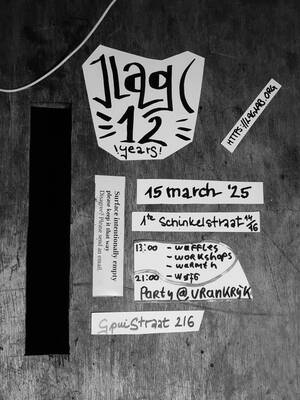 LAG
12
!years!
HTTPS://LAGLAB.ORG
Surface intentionally empty
please keep it that way
Disagree? Please send an email
15 march '25
1te Schinkelstraat 14/16
13:00 - WAFFLES
- WORKSHOPS
- WARMTH
21:00 - WIFI
Party @ VRANKRIJK
Spuistraat 216